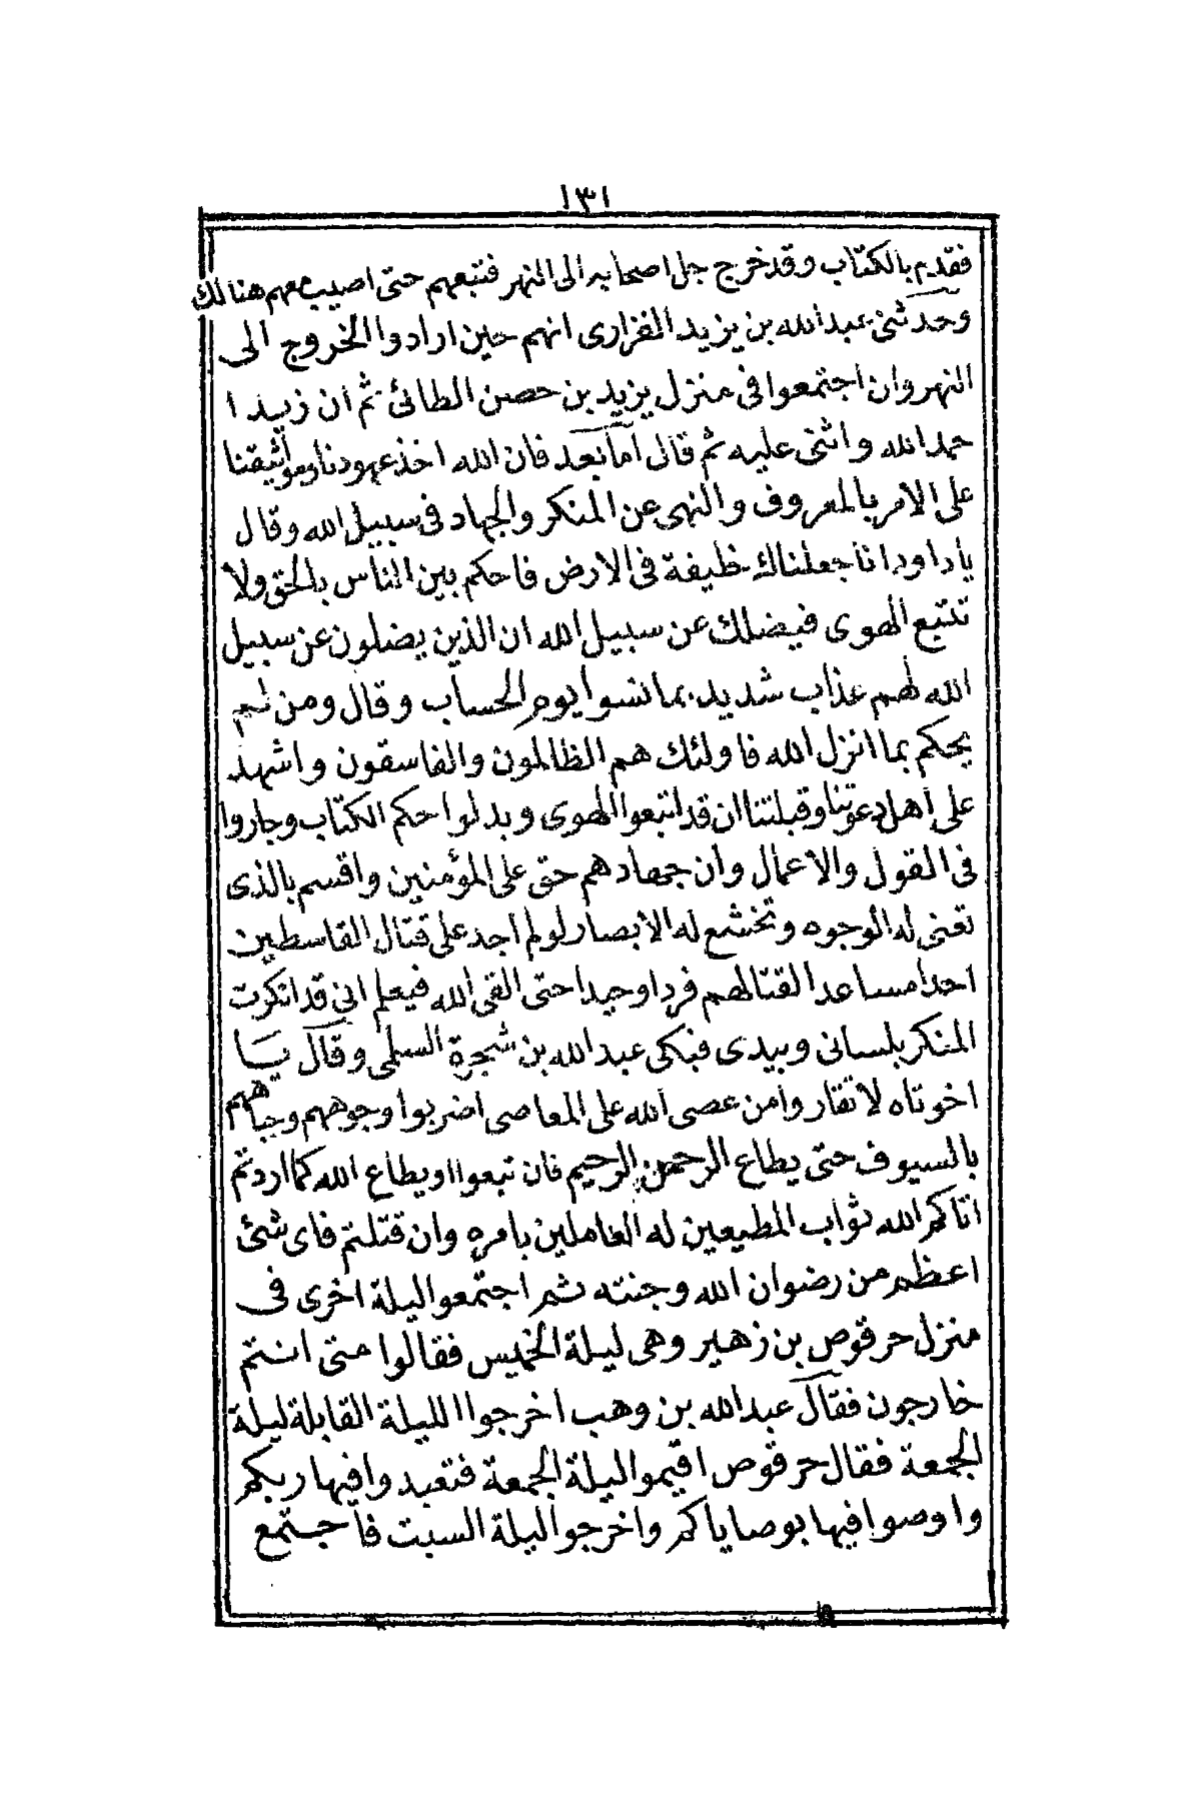 ١٣١
فقدم بالكتاب وقد خرج جل اصحابه الى النهر فتبعهم حتى اصيب معهم هنالك
وحدثنى عبدالله بن يزيد الفزارى انهم حين ارادوا الخروج الى
النهروان اجتمعوا فى منزل يزيد بن حصن الطائئ ثم ان زيدا
حمد الله واثنى عليه ثم قال اما بعد فان الله اخذ عهودنا ومواثيقنا
على الامر بالمعروف والنهى عن المنكر والجهاد فى سبيل الله وقال
يا داود انا جعلناك خليفة فى الارض فاحكم بين الناس بالحق ولا
تتبع الهوى فيضلك عن سبيل الله ان الذين يضلون عن سبيل
الله لهم عذاب شديد بما نسوا يوم الحساب وقال ومن لم
يحكم بما انزل الله فاولئك هم الظالمون والفاسقون واشهد
على اهل دعوتنا وقبلتنا ان قد اتبعوا الهوى وبدلوا حكم الكتاب وجاروا
فى القول والاعمال وان جهادهم حق على المؤمنين واقسم بالذى
تعنى له الوجوه وتخشع له الابصار لو لم اجد على قتال القاسطين
احدا مساعدا لقتالهم فردا وحيدا حتى القى الله فيعلم انى قد انكرت
المنكر بلسانى وبيدى فبكى عبدالله بن شجرة السلمى وقال يا
اخوتاه لا تقار وامن عصى الله على المعاصى اضربوا وجوههم وجباههم
بالسيوف حتى يطاع الرحمن الرحيم فان تبعوا اويطاع الله كما اردتم
اتاكم الله ثواب المطيعين له العاملين بامره وان قتلتم فاى شئ
اعظم من رضوان الله وجنته ثم اجتمعوا ليلة اخرى فى
منزل حرقوص بن زهير وهى ليلة الخميس فقالوا متى انتم
خارجون فقال عبدالله بن وهب اخرجوا الليلة القابلة ليلة
الجمعة فقال حرقوص اقيموا ليلة الجمعة فتعبدوا فيها ربكم
واوصوا فيها بوصاياكم واخرجوا ليلة السبت فاجتمع